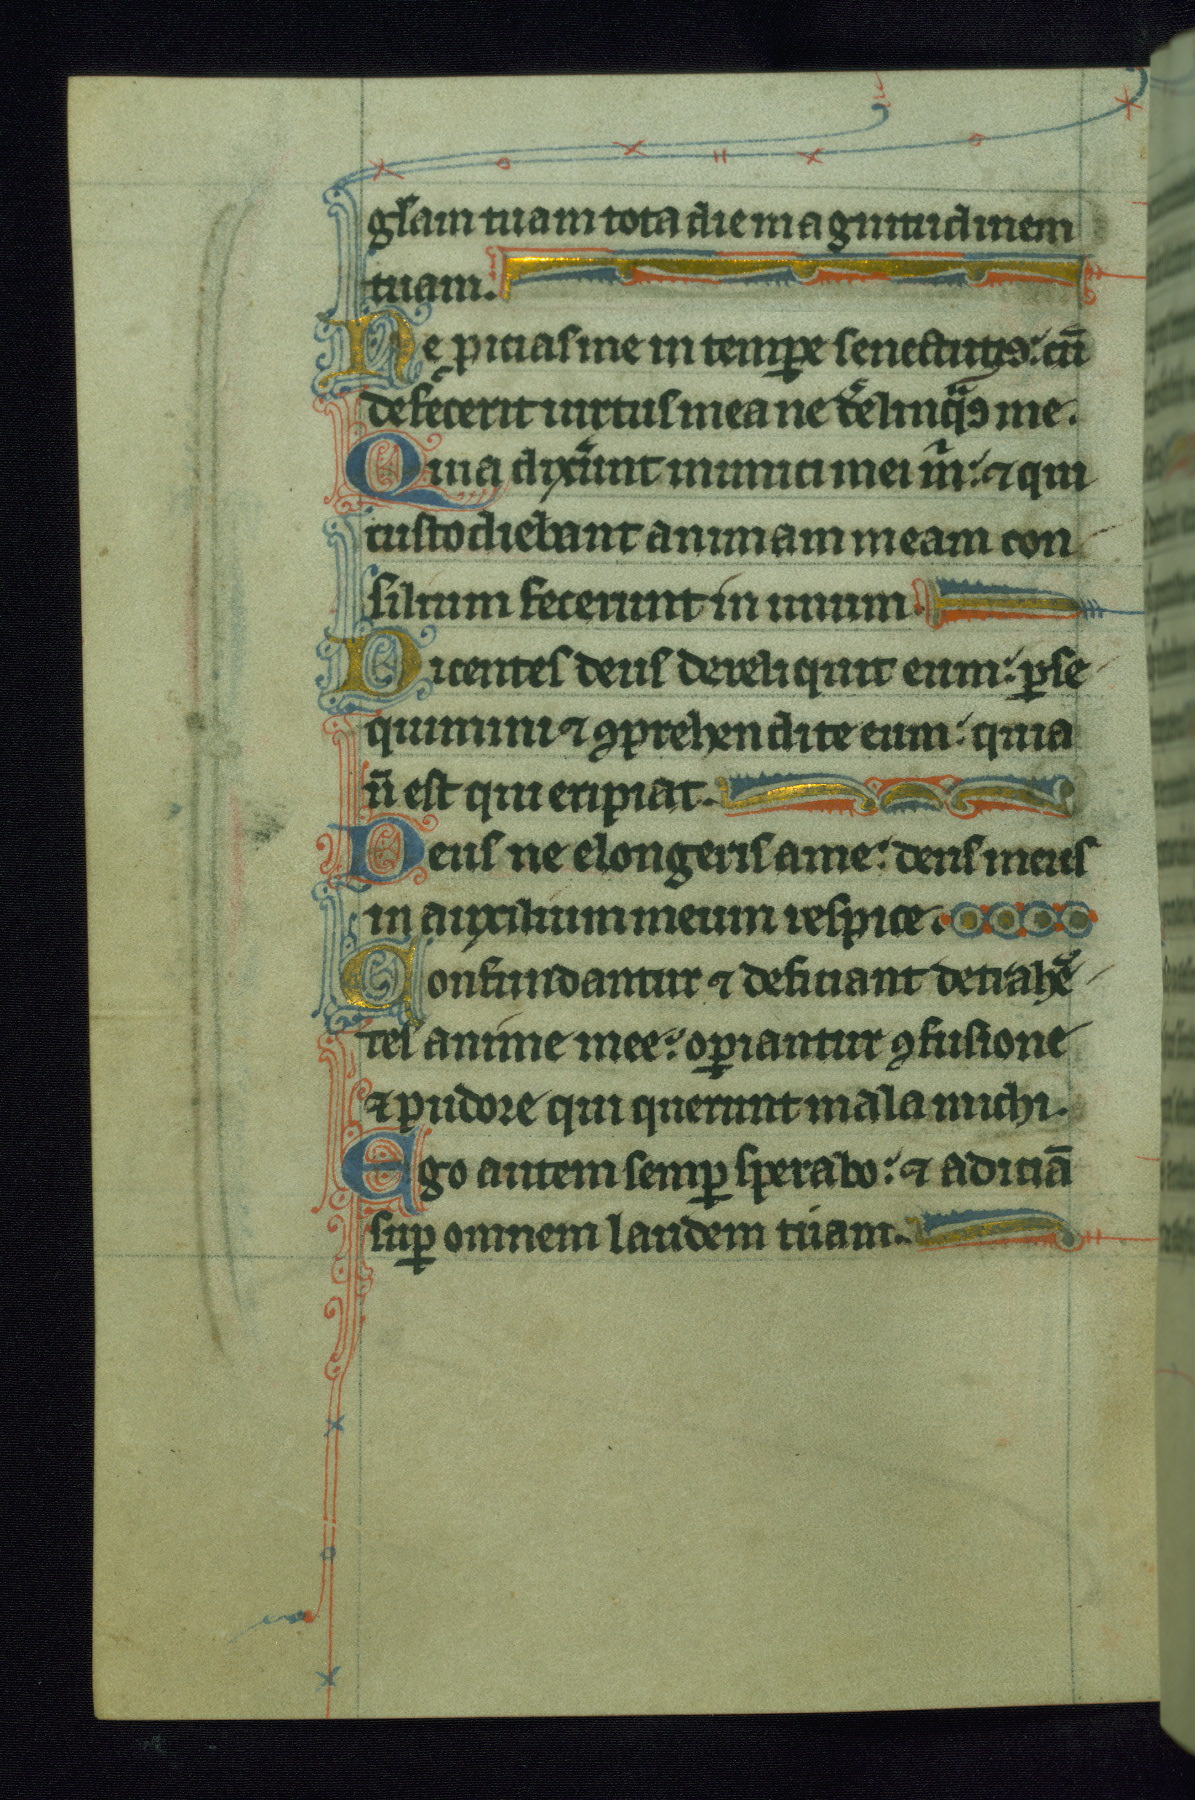 gl̃am tuam tota die magnitudinem
tuam.
Ne piciasme in temꝑe senectutꝭ: cũ
defecerit uirtus mea ne derelinqͣs me.
Quia dixerunt inimici mei m̃: ⁊ qui
custodiebant animam meam con
silium fecerunt in unum.
Dicentes deus dereliquit eum: ꝑse
quimini ⁊ ꝯprehendite eum: quia
ñ est qui eripiat.
Deus ne elongeris a me: deus meus
in auxilium meum respice.
Confundantur ⁊ deficiant detrahẽ
tes anime mee: oꝑiantur ꝯfusione
⁊ pudore qui querunt mala michi.
Ego autem semꝑ sperabo: ⁊ adiciã
suꝑ omnem laudem tuam.